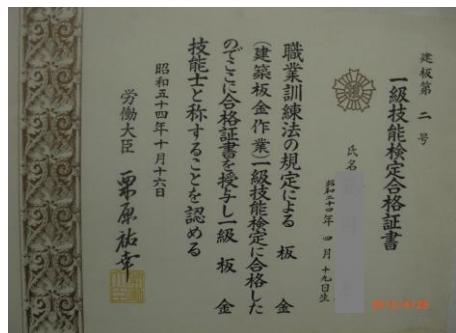 建板第二号
一級技能検定合格証書
氏名
昭和二十四年四月十九日生
職業訓練法の規定による 板金
(建築板金作業)一級技能検定に合格した
のでここに合格証書を授与し一級 板金
技能士と称することを認める
昭和五十四年十月十六日
労働大臣 栗原祐幸